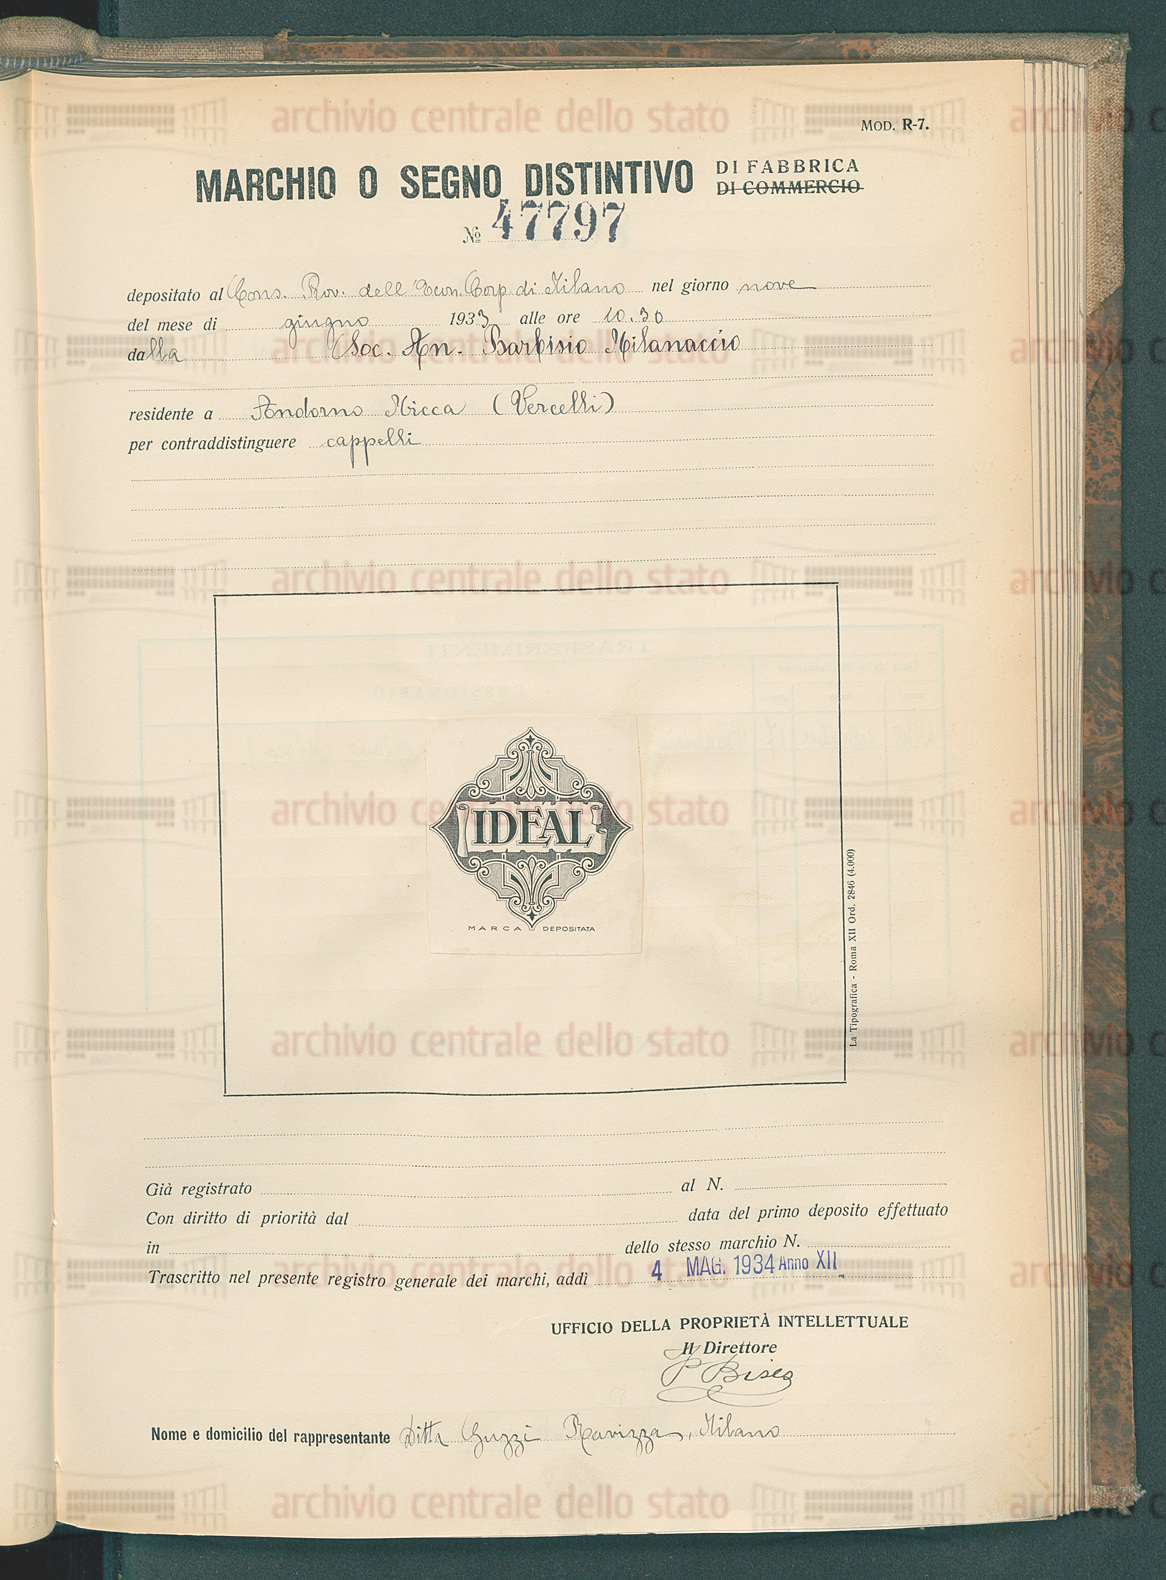 MOD. R-7.
MARCHIO O SEGNO DISTINTIVO DI FABBRICA
DI COMMERCIO
No 47797
depositato al Cons. Prov. dell'Econ. Corp di Milano nel giorno nove
del mese di giugno 1933 alle ore 10.30
dalla Soc. An. Barbisio Milanaccio
residente a Andorno Micca (Vercelli)
per contraddistinguere cappelli
IDEAL
MARCA DEPOSITATA
La Tipografica - Roma XII Ord. 2846 (4.000)
Già registrato al N.
Con diritto di priorità dal data del primo deposito effettuato
in dello stesso marchio N.
Trascritto nel presente registro generale dei marchi, addì 4 MAG. 1934 Anno XII
UFFICIO DELLA PROPRIETÀ INTELLETTUALE
Il Direttore
Nome e domicilio del rappresentante Ditta Guzzi Ravizza, Milano
archivio centrale dello stato